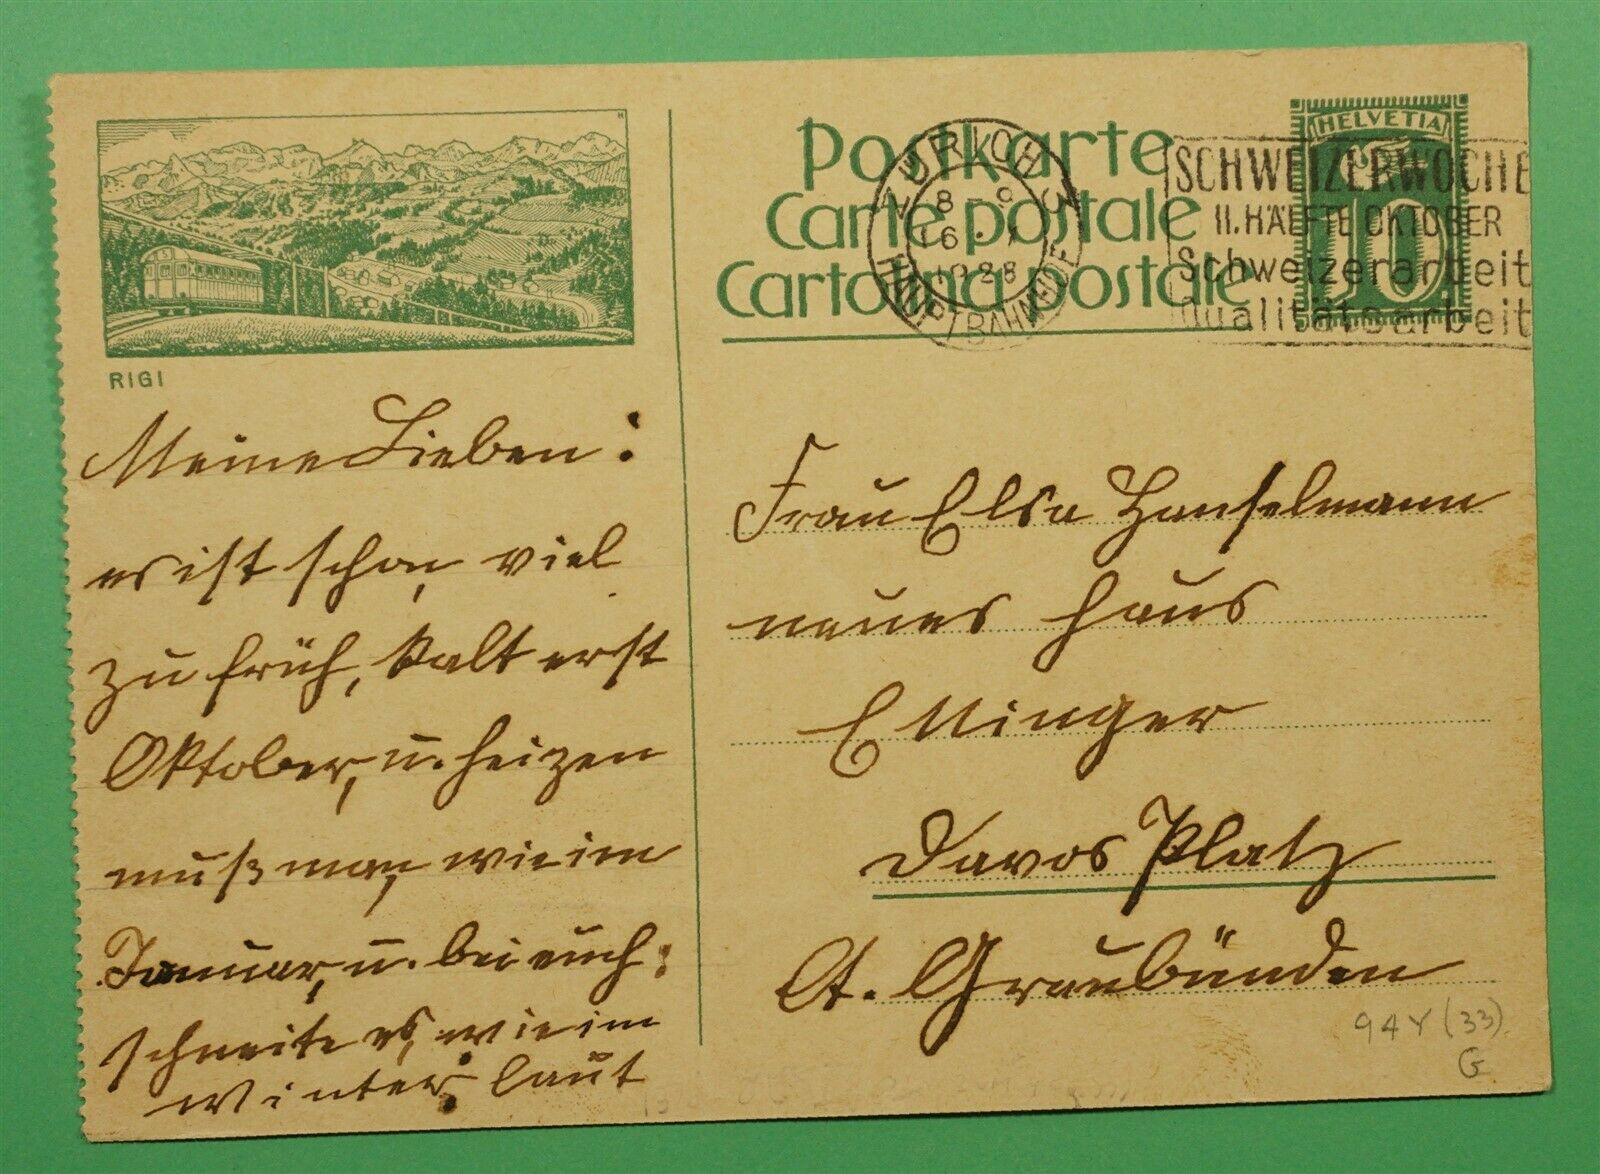 H
RIGI
Postkarte
Carte postale
Cartolina postale
HELVETIA
10
ZÜRICH 3
8-9
16.
1928
HAUPTBAHNHOF
SCHWEIZERWOCHE
II. HÄLFTE OKTOBER
Schweizerarbeit
Qualitätsarbeit
Meine Lieben:
es ist schon, viel
zu früh, kalt erst
Oktober, u. heizen
muß man, wie im
Januar, u. bei euch:
schneite es, wie im
Winter, laut
Frau Elsa Hanselmann
neues Haus
Ettinger
Davos Platz
Ct. Graubünden
94 Y (33)
G